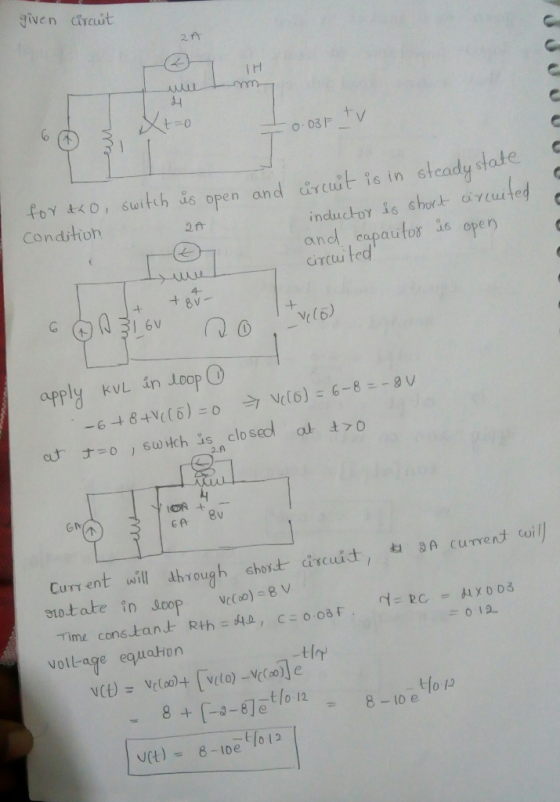 given circuit
2A
4
1H
6
1
t=0
0.03F
+
V
-
for t<0, switch is open and circuit is in steady state
condition
inductor is short circuited
and capacitor is open
circuited
2A
4
+ 8V -
6
1
+
6V
-
①
+
Vc(0̄)
-
apply KVL in loop ①
-6+8+Vc(0̄) = 0 ⇒ Vc(0̄) = 6-8 = -8V
at t=0, switch is closed at t>0
2A
4
6A
6A
+
8V
-
Current will through short circuit, 2A current will
rotate in loop Vc(∞) = 8V
Time constant Rth = 4Ω, C = 0.03F. τ = RC = 4×0.03
= 0.12
voltage equation
V(t) = Vc(∞) + [Vc(0) - Vc(∞)]e^-t/τ
= 8 + [-2-8]e^-t/0.12 = 8-10e^-t/0.12
V(t) = 8-10e^-t/0.12